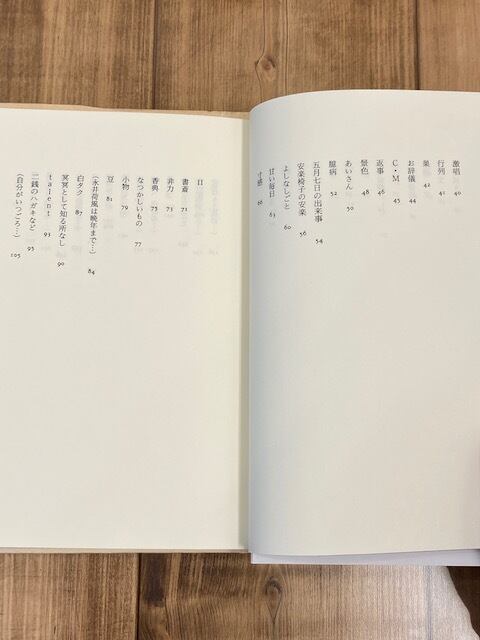 激唱 40
行列 41
巣 42
お辞儀 44
C・M 45
返事 46
景色 48
あいさん 50
臆病 52
五月七日の出来事 54
安楽椅子の安楽 56
よしなしごと 60
甘い毎日 63
寸感 66
II
書斎 71
非力 73
香典 75
なつかしいもの 77
小物 79
豆 81
(永井荷風は晩年まで…) 84
白タク 87
冥冥として知る所なし 90
talent 93
二銭のハガキなど 95
(自分がいつごろ…) 105